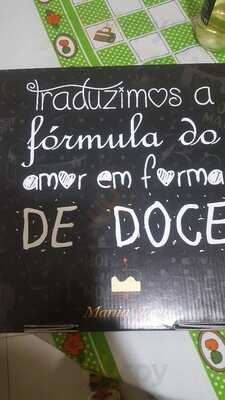 Traduzimos a
fórmula do
amor em forma
DE DOCE
Mania